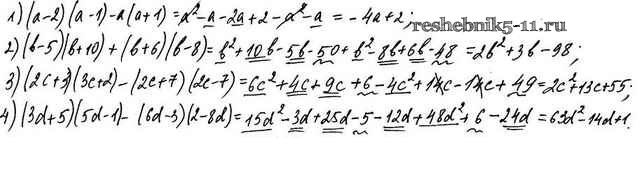 reshebnik5-11.ru
1) (a-2)(a-1)-a(a+1)=a²-a-2a+2-a²-a=-4a+2;
2) (b-5)(b+10)+(b+6)(b-8)=b²+10b-5b-50+b²-8b+6b-48=2b²+3b-98;
3) (2c+3)(3c+2)-(2c+7)(2c-7)=6c²+4c+9c+6-4c²+14c-14c+49=2c²+13c+55;
4) (3d+5)(5d-1)-(6d-3)(2-8d)=15d²-3d+25d-5-12d+48d²+6-24d=63d²-14d+1.